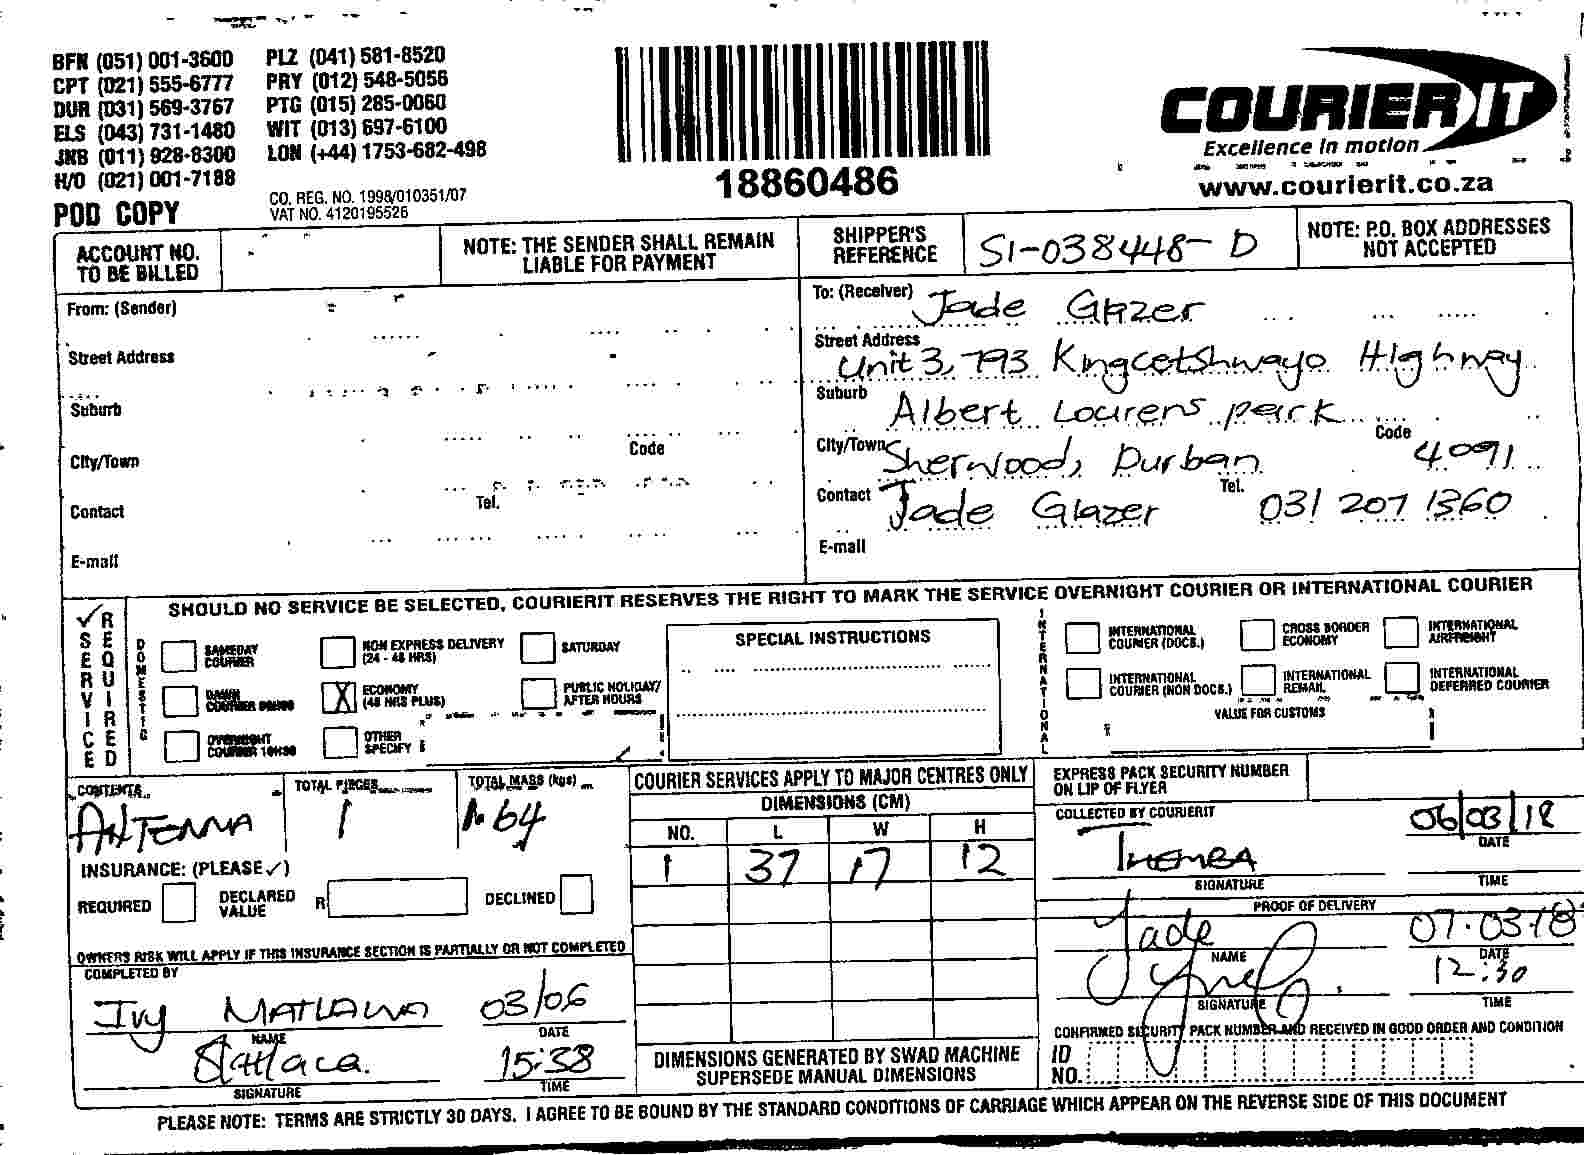 BFN (051) 001-3600 PLZ (041) 581-8520
CPT (021) 555-6777 PRY (012) 548-5056
DUR (031) 569-3767 PTG (015) 285-0060
ELS (043) 731-1480 WIT (013) 697-6100
JNB (011) 928-8300 LON (+44) 1753-682-498
H/O (021) 001-7188
POD COPY
CO. REG. NO. 1998/010351/07
VAT NO. 4120195526
18860486
COURIER IT
Excellence in motion
www.courierit.co.za
ACCOUNT NO. TO BE BILLED
NOTE: THE SENDER SHALL REMAIN LIABLE FOR PAYMENT
SHIPPER'S REFERENCE
SI-038448-D
NOTE: P.O. BOX ADDRESSES NOT ACCEPTED
From: (Sender)
Street Address
Suburb
City/Town
Code
Contact
Tel.
E-mail
To: (Receiver) Jade Glazer
Street Address Unit 3, 793 Kingcetshwayo Highway
Suburb Albert Lourens park
City/Town Sherwood, Durban Code 4091
Contact Jade Glazer Tel. 031 207 1360
E-mail
SERVICE REQUIRED
SHOULD NO SERVICE BE SELECTED, COURIERIT RESERVES THE RIGHT TO MARK THE SERVICE OVERNIGHT COURIER OR INTERNATIONAL COURIER
DOMESTIC
SAMEDAY COURIER
NON EXPRESS DELIVERY (24 - 48 HRS)
SATURDAY
DAWN COURIER
X ECONOMY (48 HRS PLUS)
PUBLIC HOLIDAY/ AFTER HOURS
OVERNIGHT COURIER 10H30
OTHER SPECIFY
SPECIAL INSTRUCTIONS
INTERNATIONAL
INTERNATIONAL COURIER (DOCS.)
CROSS BORDER ECONOMY
INTERNATIONAL AIRFREIGHT
INTERNATIONAL COURIER (NON DOCS.)
INTERNATIONAL REMAIL
INTERNATIONAL DEFERRED COURIER
VALUE FOR CUSTOMS
CONTENTS ANTENNA
TOTAL PIECES 1
TOTAL MASS (kgs) 1.64
INSURANCE: (PLEASE ✓)
REQUIRED
DECLARED VALUE R
DECLINED
OWNERS RISK WILL APPLY IF THIS INSURANCE SECTION IS PARTIALLY OR NOT COMPLETED
COMPLETED BY
Ivy MATLAWA 03/06
NAME DATE
15:38
SIGNATURE TIME
COURIER SERVICES APPLY TO MAJOR CENTRES ONLY
DIMENSIONS (CM)
NO. L W H
1 37 17 12
DIMENSIONS GENERATED BY SWAD MACHINE SUPERSEDE MANUAL DIMENSIONS
EXPRESS PACK SECURITY NUMBER ON LIP OF FLYER
COLLECTED BY COURIERIT
THEMBA 06/03/18
SIGNATURE DATE
TIME
PROOF OF DELIVERY
Jade 07.03.18
NAME DATE
12:30
SIGNATURE TIME
CONFIRMED SECURITY PACK NUMBER AND RECEIVED IN GOOD ORDER AND CONDITION
ID NO.
PLEASE NOTE: TERMS ARE STRICTLY 30 DAYS. I AGREE TO BE BOUND BY THE STANDARD CONDITIONS OF CARRIAGE WHICH APPEAR ON THE REVERSE SIDE OF THIS DOCUMENT